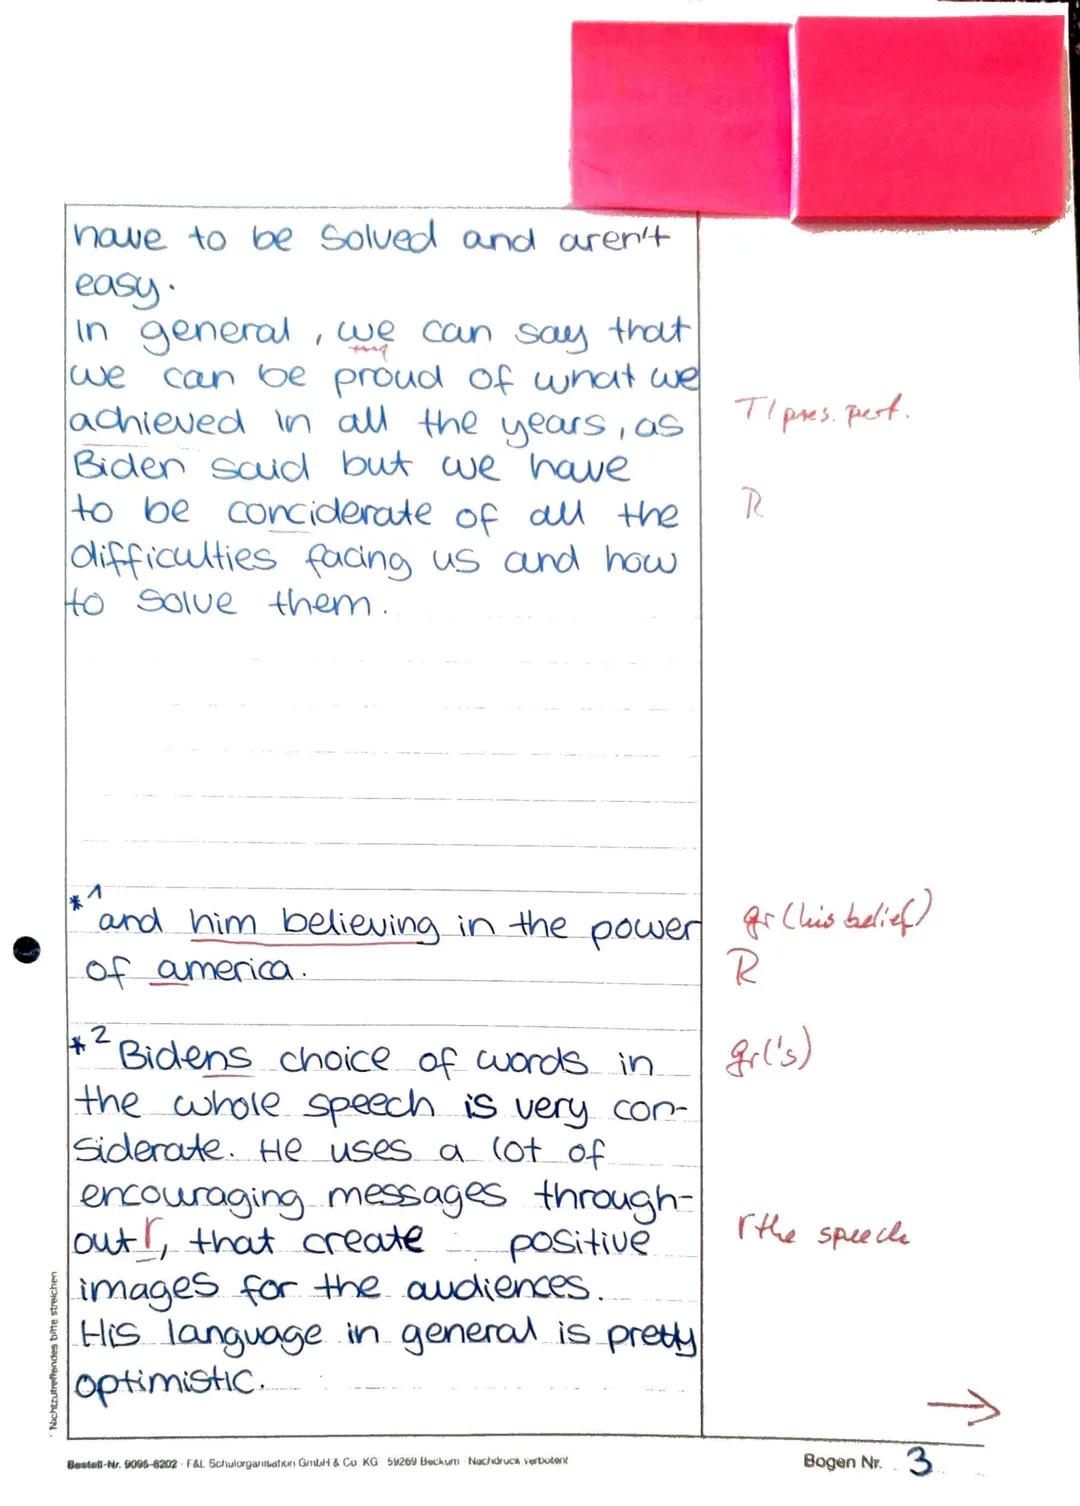 have to be solved and aren't
easy.
In general, we can say that
we can be proud of what we
achieved in all the years, as
T/pres. perf.
Biden said but we have
to be conciderate of all the
R
difficulties facing us and how
to solve them.
*1 and him believing in the power
gr (his belief)
of america.
R
*2 Bidens choice of words in
gr('s)
the whole speech is very con-
siderate. He uses a lot of
encouraging messages through-
out ┌, that create positive
┌ the speech
images for the audiences.
His language in general is pretty
optimistic.
→
Nichtzutreffendes bitte streichen
Bestell-Nr. 9095-8202 · F&L Schulorganisation GmbH & Co KG 59269 Beckum · Nachdruck verboten!
Bogen Nr. 3